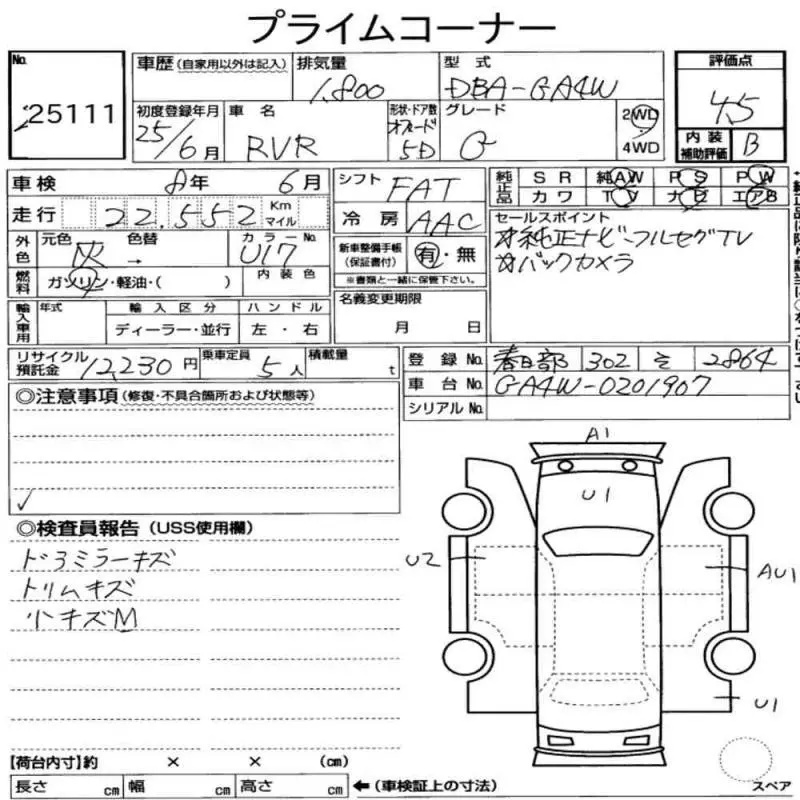 プライムコーナー
No. 25111
車歴(自家用以外は記入) 排気量 1.800 型式 DBA-GA4W
評価点 4.5
初度登録年月 25/6月 車名 RVR 形状・ドア数 5D グレード G 2WD 4WD
内装補助評価 B
車検 8年 6月 シフト FAT 純正品 SR 純AW PS PW
走行 22.552 Km マイル 冷房 AAC カワ TV ナビ エアB
外色 元色 灰 色替 → カラーNo. U17 新車整備手帳(保証書付) 有・無
※書類と一緒に保管下さい。
セールスポイント
☆純正ナビ-フルセグTV
☆バックカメラ
燃料 ガソリン・軽油・( ) 内装色
名義変更期限 月 日
輸入車用 年式 輸入区分 ディーラー・並行 ハンドル 左・右
リサイクル預託金 12,230円 乗車定員 5人 積載量 t
登録No. 春日部 302 そ 2864
車台No. GA4W-0201907
シリアルNo.
◎注意事項(修復・不具合箇所および状態等)
✓
◎検査員報告(USS使用欄)
ドアミラーキズ
トリムキズ
小キズM
A1
U1
U2
AU1
U1
スペア
【荷台内寸】約 × × (cm)
長さ cm 幅 cm 高さ cm ←(車検証上の寸法)